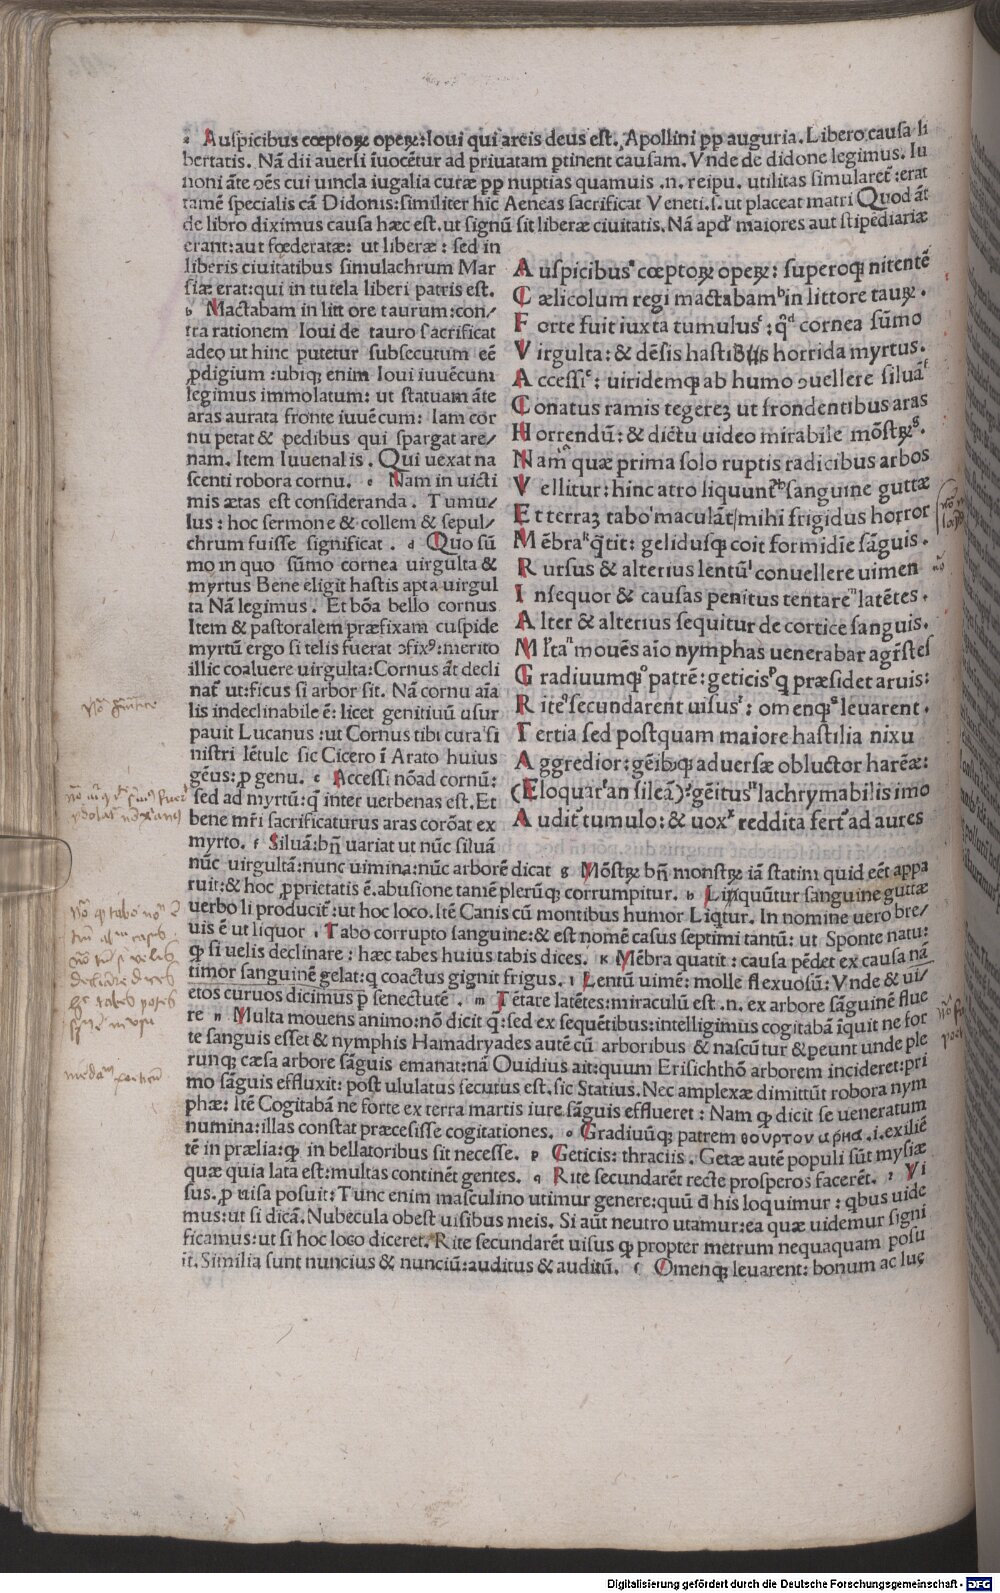 a Auſpicibus cœptoꝝ opeꝝ: Ioui qui arcis deus eſt. Apollini ꝓp auguria. Libero cauſa li
bertatis. Nā dii auerſi īuocētur ad priuatam ꝑtinent cauſam. Vnde de didone legimus. Iu
noni āte oēs cui uincla iugalia curæ ꝓp nuptias quamuis .n. reipu. utilitas simularet̄: erat
tamē ſpecialis cā Didonis: ſimiliter hic Aeneas ſacrificat Veneti. ſ. ut placeat matri Quod āt
de libro diximus cauſa hæc eſt. ut ſignū ſit liberæ ciuitatis. Nā apd̕ maiores aut ſtipēdiariæ
erant: aut fœderatæ: ut liberæ: ſed in
liberis ciuitatibus ſimulachrum Mar
ſiæ erat: qui in tutela liberi patris eſt.
b Mactabam in litt ore taurum: con/
tra rationem Ioui de tauro ſacrificat
adeo ut hinc putetur ſubſecutum eē
ꝓdigium: ubiqꝫ enim Ioui iuuēcum
legimus immolatum: ut ſtatuam āte
aras aurata fronte iuuēcum: Iam cor
nu petat & pedibus qui ſpargat are/
nam. Item Iuuenalis. Qui uexat na
ſcenti robora cornu. c Nam in uicti
mis ætas eſt conſideranda. Tumu/
lus: hoc ſermone & collem & ſepul/
chrum fuiſſe ſignificat. d Quo ſū
mo in quo ſūmo cornea uirgulta &
myrtus Bene eligit haſtis apta uirgul
ta Nā legimus. Et bōa bello cornus
Item & paſtoralem præfixam cuſpide
myrtū ergo ſi telis fuerat ɔfixꝰ: merito
illic coaluere uirgulta: Cornus āt decli
nat̄ ut: ficus ſi arbor ſit. Nā cornu aīa
lis indeclinabile ē: licet genitiuū uſur
pauit Lucanus: ut Cornus tibi cura ſi
niſtri Lētule ſic Cicero ī Arato huius
gēus: ꝓ genu. e Acceſſi nōad cornū:
ſed ad myrtū: q̄ inter uerbenas eſt. Et
bene mr̄i ſacrificaturus aras corōat ex
myrto. f Siluā: bn̄ uariat ut nūc ſiluā
Auſpicibusᵃ cœptoꝝ opeꝝ: ſuperoqꝫ nitentē
Cælicolum regi mactabamᵇ in littore tauꝝ.
Forte fuit iuxta tumulusᶜ: q̊ᵈ cornea ſūmo
Virgulta: & dēſis haſtilibus horrida myrtus.
Acceſſiᵉ: uiridemqꝫ ab humo ɔuellere ſiluāᶠ
Conatus ramis tegereꝫ ut frondentibus aras
Horrendū: & dictu uideo mirabile mōſtꝝᵍ.
Nam quæ prima ſolo ruptis radicibus arbos
Vellitur: hinc atro liquunt̄ʰ ſanguine guttæ
Et terraꝫ taboⁱ maculāt/mihi frigidus horror
Mēbraᵏ q̄tit: geliduſqꝫ coit formidīe sāguis.
Rurſus & alterius lentūˡ conuellere uimen
Inſequor & cauſas penitus tentareᵐ latētes.
Alter & alterius ſequitur de cortice ſanguis.
Ml̄taⁿ mouēs aīo nymphas uenerabar agr̄ſtes
Gradiuumqꝫᵒ patrē: geticisᵖ q̇ præſidet aruis:
Rite ſecundarent uiſusʳ: omenqꝫˢ leuarent.
Tertia ſed poſtquam maiore haſtilia nixu
Aggredior: gēibꝰqꝫ aduerſæ obluctor harēæ:
(Eloquar an ſileā) gēitus lachrymabilis imo
Audit̄ tumulo: & uox reddita fert̄ ad aures
nūc uirgultā: nunc uimina: nūc arborē dicat g Mōſtꝝ bn̄ monſtꝝ iā ſtatim quid eēt appa
ruit: & hoc ꝓprietatis ē. abuſione tamē plerūqꝫ corrumpitur. h Linquūtur ſanguine guttæ
uerbo li producit̄: ut hoc loco. Itē Canis cū montibus humor Liq̄tur. In nomine uero bre/
uis ē ut liquor. i Tabo corrupto ſanguine: & eſt nomē caſus ſeptimi tantū: ut Sponte natu:
ꝙ ſi uelis declinare: hæc tabes huius tabis dices. k Mēbra quatit: cauſa pēdet ex cauſa nā
timor ſanguinē gelat: q̇ coactus gignit frigus. l Lentū uimē: molle flexuoſū: Vnde & ui/
etos curuos dicimus ꝓ ſenectutē. m Tētare latētes: miraculū eſt .n. ex arbore ſāguinē flue
re n Multa mouens animo: nō dicit q̇: ſed ex ſequētibus: intelligimus cogitabā īquit ne for
te ſanguis eſſet & nymphis Hamadryades autē cū arboribus & naſcūtur & peunt unde ple
runqꝫ cæſa arbore ſāguis emanat: nā Ouidius ait: quum Eriſichthō arborem incideret: pri
mo ſāguis effluxit: poſt ululatus ſecutus eſt. ſic Statius. Nec amplexæ dimittūt robora nym
phæ: Itē Cogitabā ne forte ex terra martis iure ſāguis efflueret: Nam ꝙ dicit ſe ueneratum
numina: illas conſtat præceſiſſe cogitationes. o Gradiuūqꝫ patrem θουρτον αρηα .i. exiliē
tē in prælia: ꝙ in bellatoribus ſit neceſſe. p Geticis: thraciis. Getæ autē populi ſūt myſiæ
quæ quia lata eſt: multas continēt gentes. q Rite ſecundarēt recte proſperos facerēt. r Vi
ſus. ꝓ uiſa poſuit: Tunc enim maſculino utimur genere: quū d̄ his loquimur: qbus uide
mus: ut ſi dicā. Nubecula obeſt uiſibus meis. Si aūt neutro utamur: ea quæ uidemur ſigni
ficamus: ut ſi hoc loco diceret. Rite ſecundarēt uiſus ꝙ propter metrum nequaquam poſu
it. Similia ſunt nuncius & nunciū: auditus & auditū. ſ Omenqꝫ leuarent: bonum ac luc̨
Digitalisierung gefördert durch die Deutsche Forschungsgemeinschaft - DFG